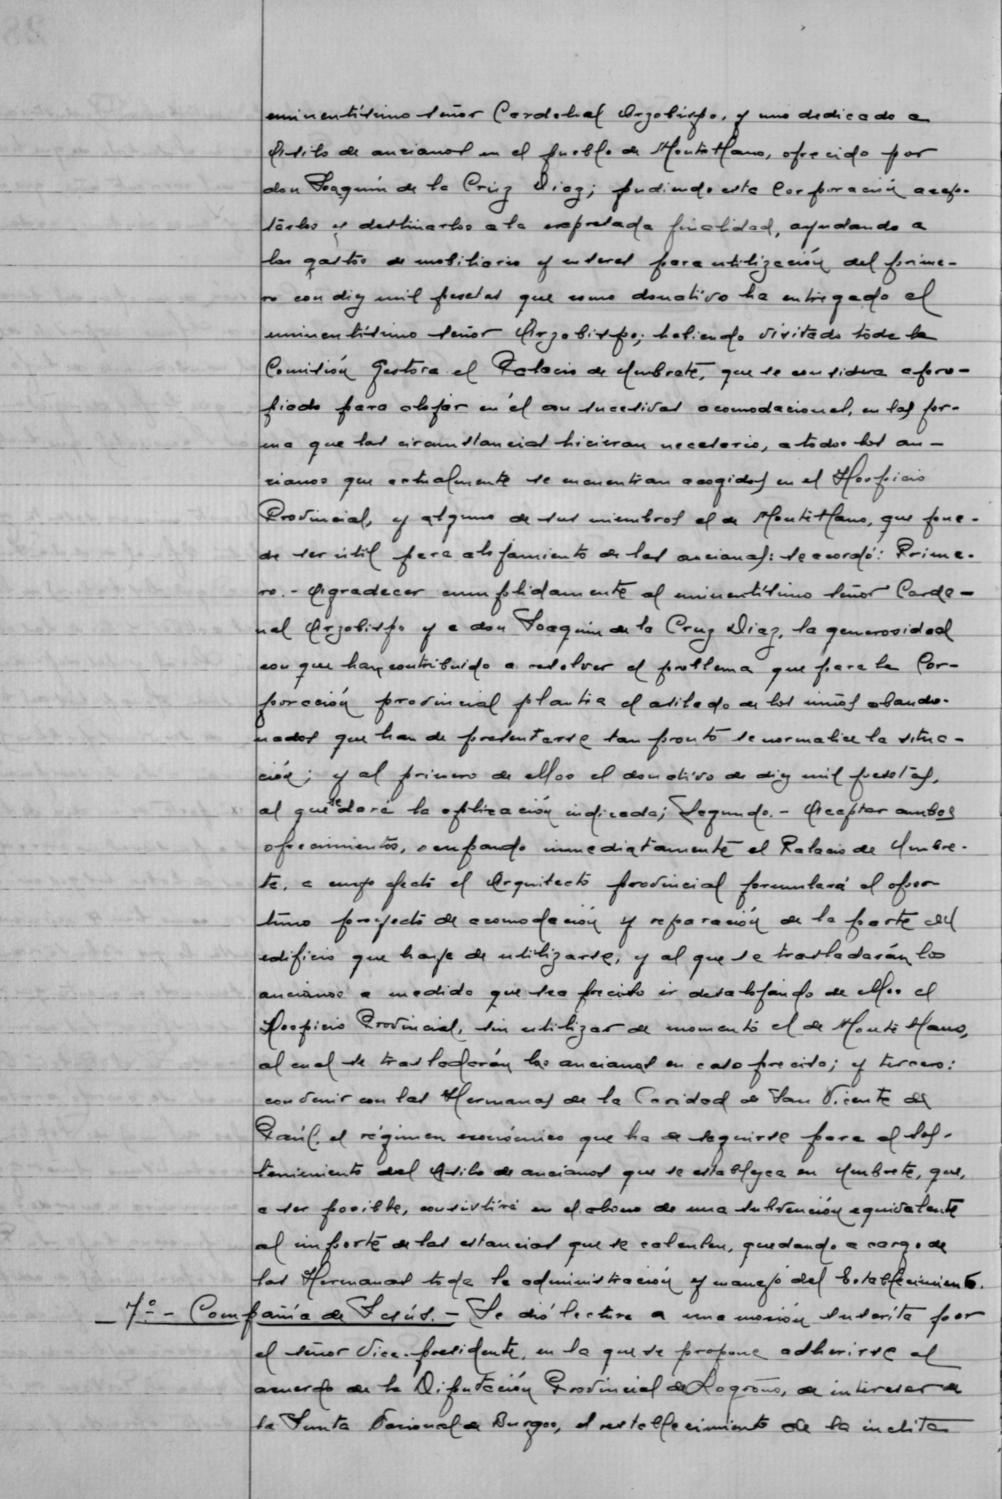 eminentísimo señor Cardenal Arzobispo, y uno dedicado a
Asilo de ancianos en el pueblo de Montellano, ofrecido por
don Joaquín de la Cruz Diaz; pudiendo esta Corporación acep-
tarlos y destinarlos a la expresada finalidad, ayudando a
los gastos de mobiliario y enseres para utilización del prime-
ro con diez mil pesetas que como donativo ha entregado el
eminentísimo señor Arzobispo; habiendo visitado toda la
Comisión Gestora el Palacio de Umbrete, que se considera apro-
piado para alojar en él en sucesivas acomodaciones, en la for-
ma que las circunstancias hicieran necesario, a todos los an-
cianos que actualmente se encuentran acogidos en el Hospicio
Provincial, y alguno de sus miembros el de Montellano, que pue-
de ser útil para alojamiento de las ancianas: se acordó: Prime-
ro.- Agradecer cumplidamente al eminentísimo señor Carde-
nal Arzobispo y a don Joaquín de la Cruz Diaz, la generosidad
con que han contribuido a resolver el problema que para la Cor-
poración provincial plantea el asilado de los niños abando-
nados que han de presentarse tan pronto se normalice la situa-
ción; y al primero de ellos el donativo de diez mil pesetas,
al que se dará la aplicación indicada; Segundo.- Aceptar ambos
ofrecimientos, ocupando inmediatamente el Palacio de Umbre-
te, a cuyo efecto el Arquitecto provincial formulará el opor-
tuno proyecto de acomodación y reparación de la parte del
edificio que haya de utilizarse, y al que se trasladarán los
ancianos a medida que sea preciso ir desalojando de ellos el
Hospicio Provincial, sin utilizar de momento el de Montellano,
al cual se trasladarán las ancianas en caso preciso; y tercero:
convenir con las Hermanas de la Caridad de San Vicente de
Paúl, el régimen económico que ha de seguirse para el sos-
tenimiento del Asilo de ancianos que se establezca en Umbrete, que,
a ser posible, consistirá en el abono de una subvención equivalente
al importe de las estancias que se calculen, quedando a cargo de
las Hermanas toda la administración y manejo del Establecimiento.
7º.- Compañía de Jesús.- Se dió lectura a una moción suscrita por
el señor Vice-presidente, en la que se propone adherirse al
acuerdo de la Diputación Provincial de Logroño, de interesar a
la Junta Nacional de Burgos, el restablecimiento de la ínclita